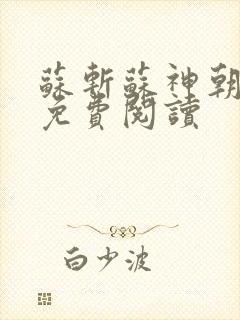 蘇斬蘇神朝
免費閱讀
白少波